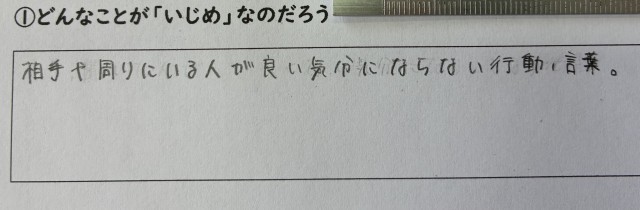 ①どんなことが「いじめ」なのだろう
相手や周りにいる人が良い気分にならない行動、言葉。